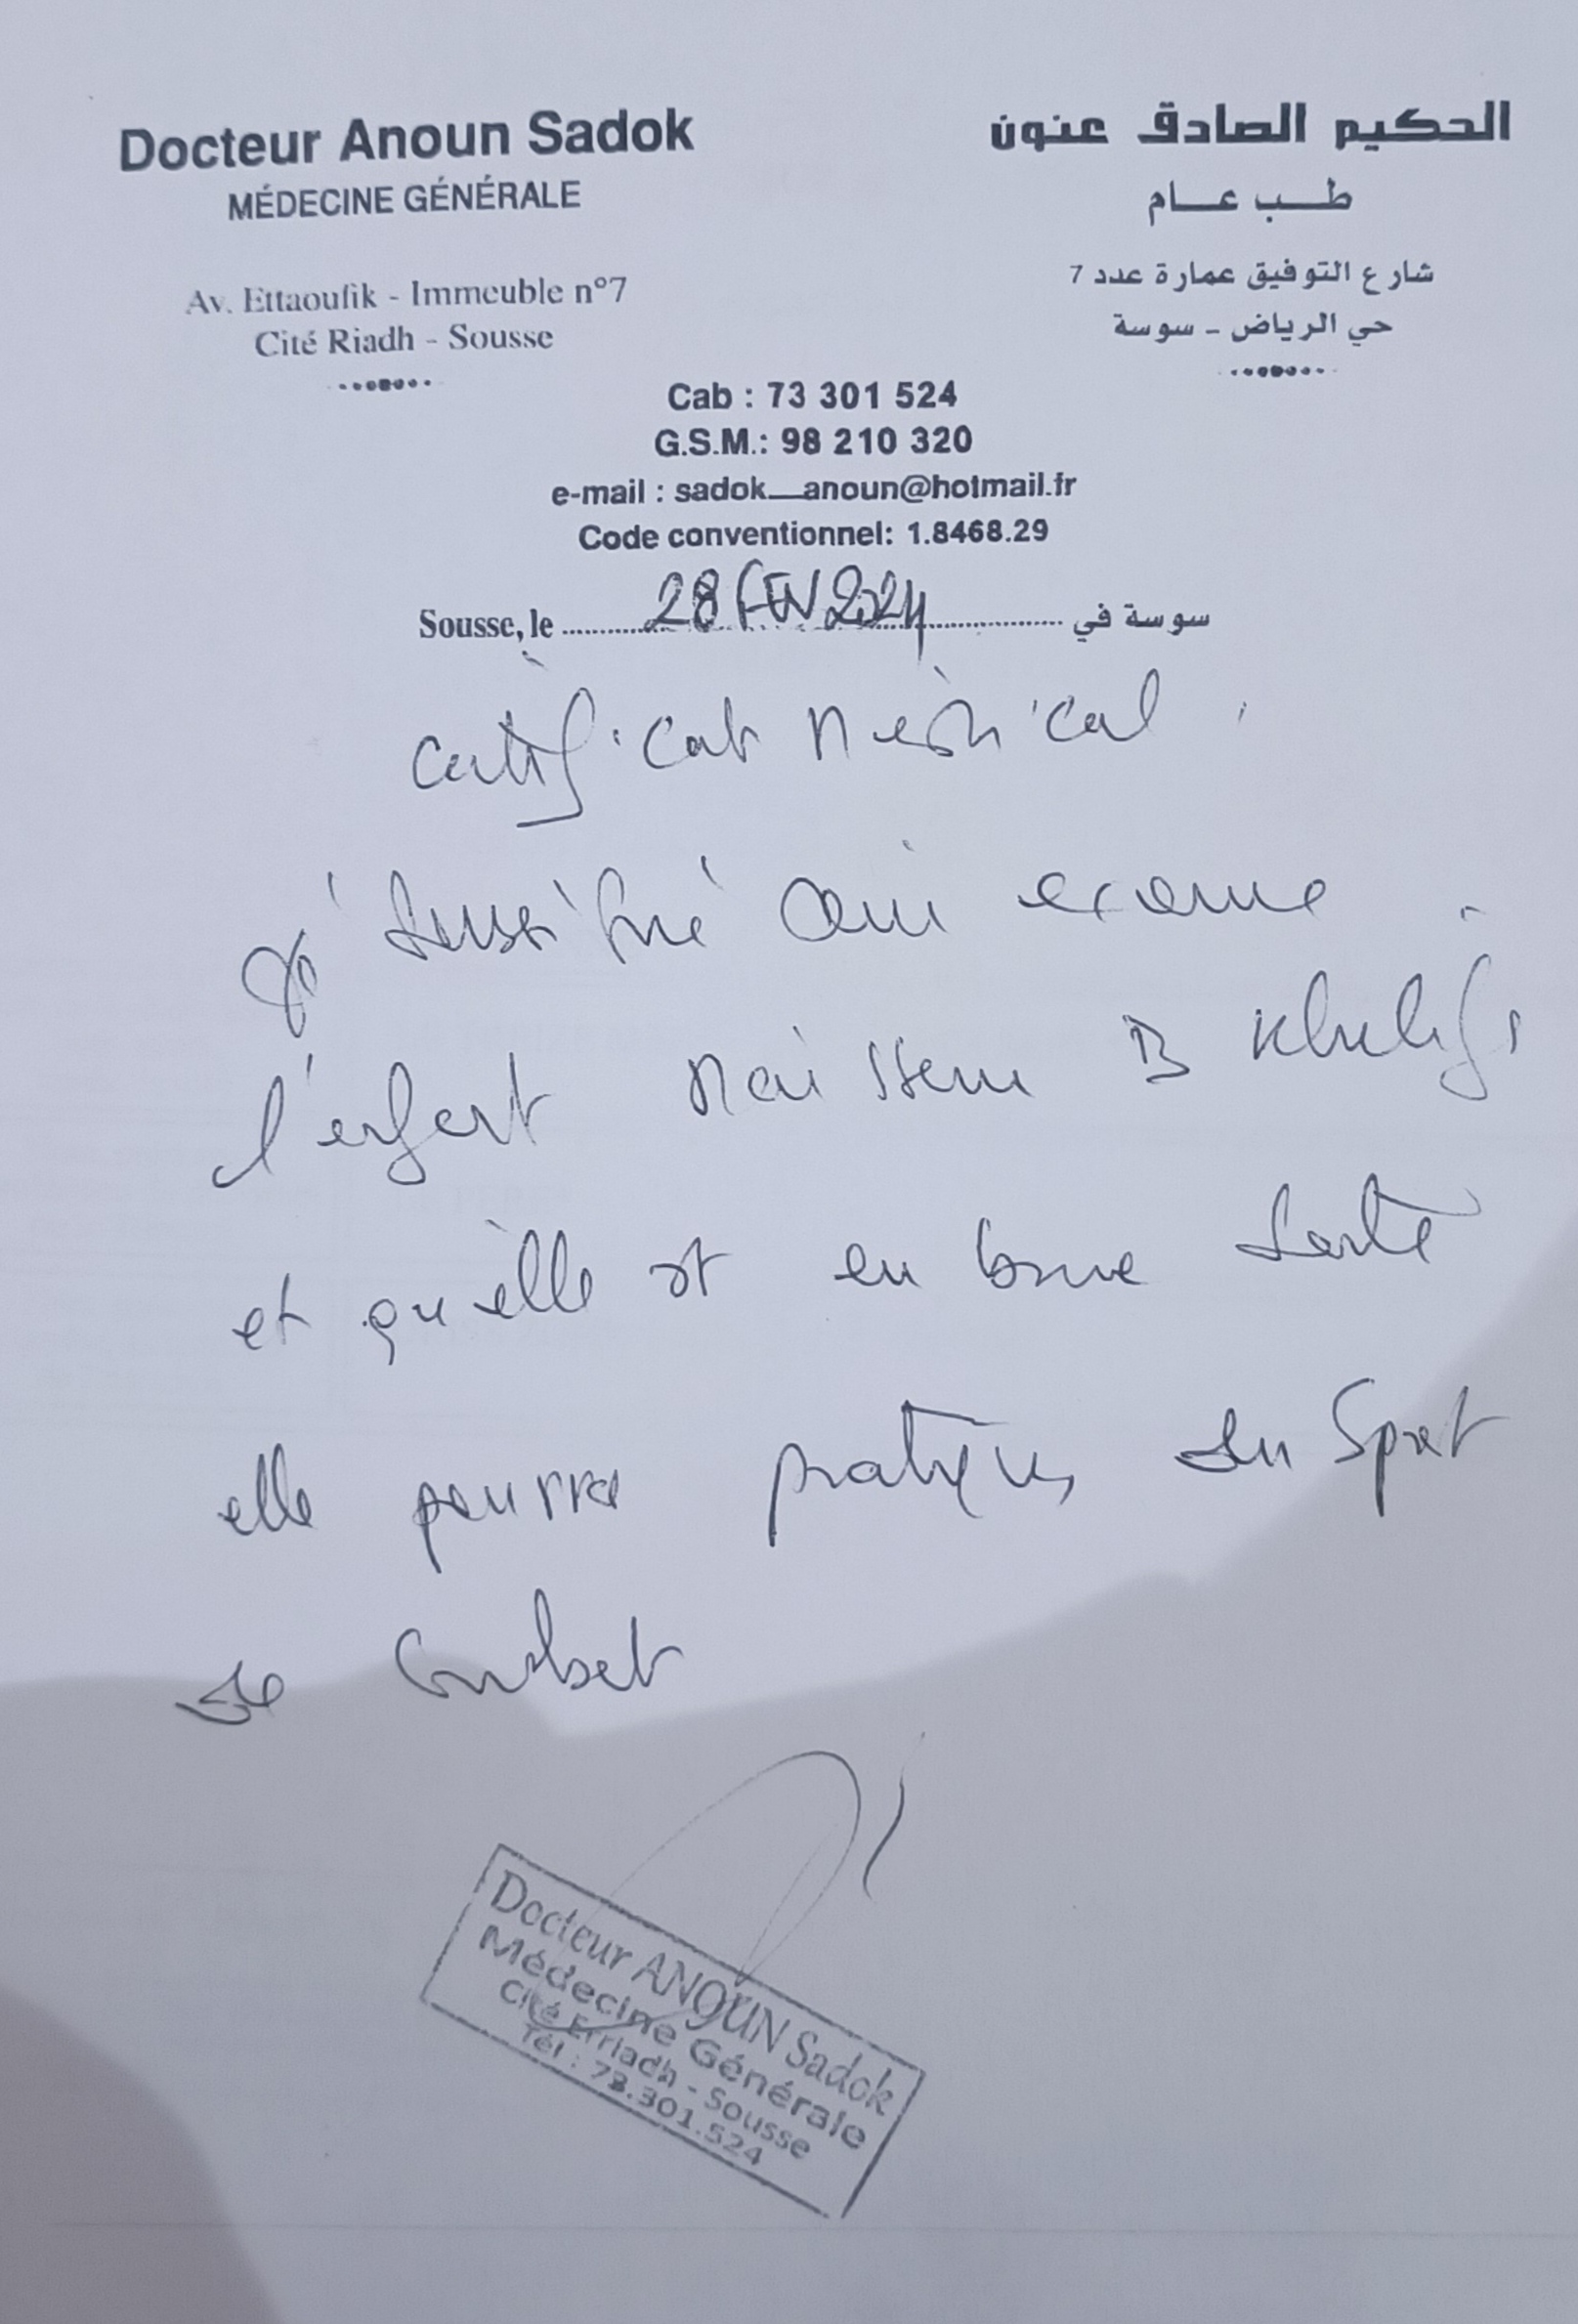 Docteur Anoun Sadok
MÉDECINE GÉNÉRALE
Av. Ettaoufik - Immeuble n°7
Cité Riadh - Sousse
الحكيم الصادق عنون
طب عام
شارع التوفيق عمارة عدد 7
حي الرياض - سوسة
Cab : 73 301 524
G.S.M.: 98 210 320
e-mail : sadok_anoun@hotmail.fr
Code conventionnel: 1.8468.29
Sousse, le 28 FEV 2024 سوسة في
Certificat Médical
soussigné
l'enfant B Khelifa
et qu'elle est en bonne santé
elle pourra pratiquer du Sport
de Combat
Docteur ANOUN Sadok
Médecine Générale
Cité Erriadh - Sousse
Tél : 73.301.524